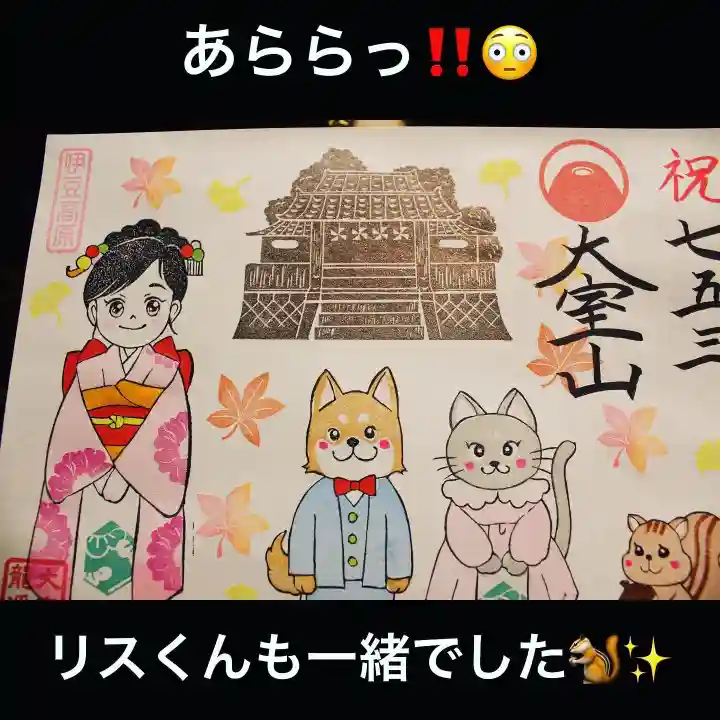 あららっ‼️😳
伊豆高原
祝
七五三
大室山
リスくんも一緒でした🐿️✨